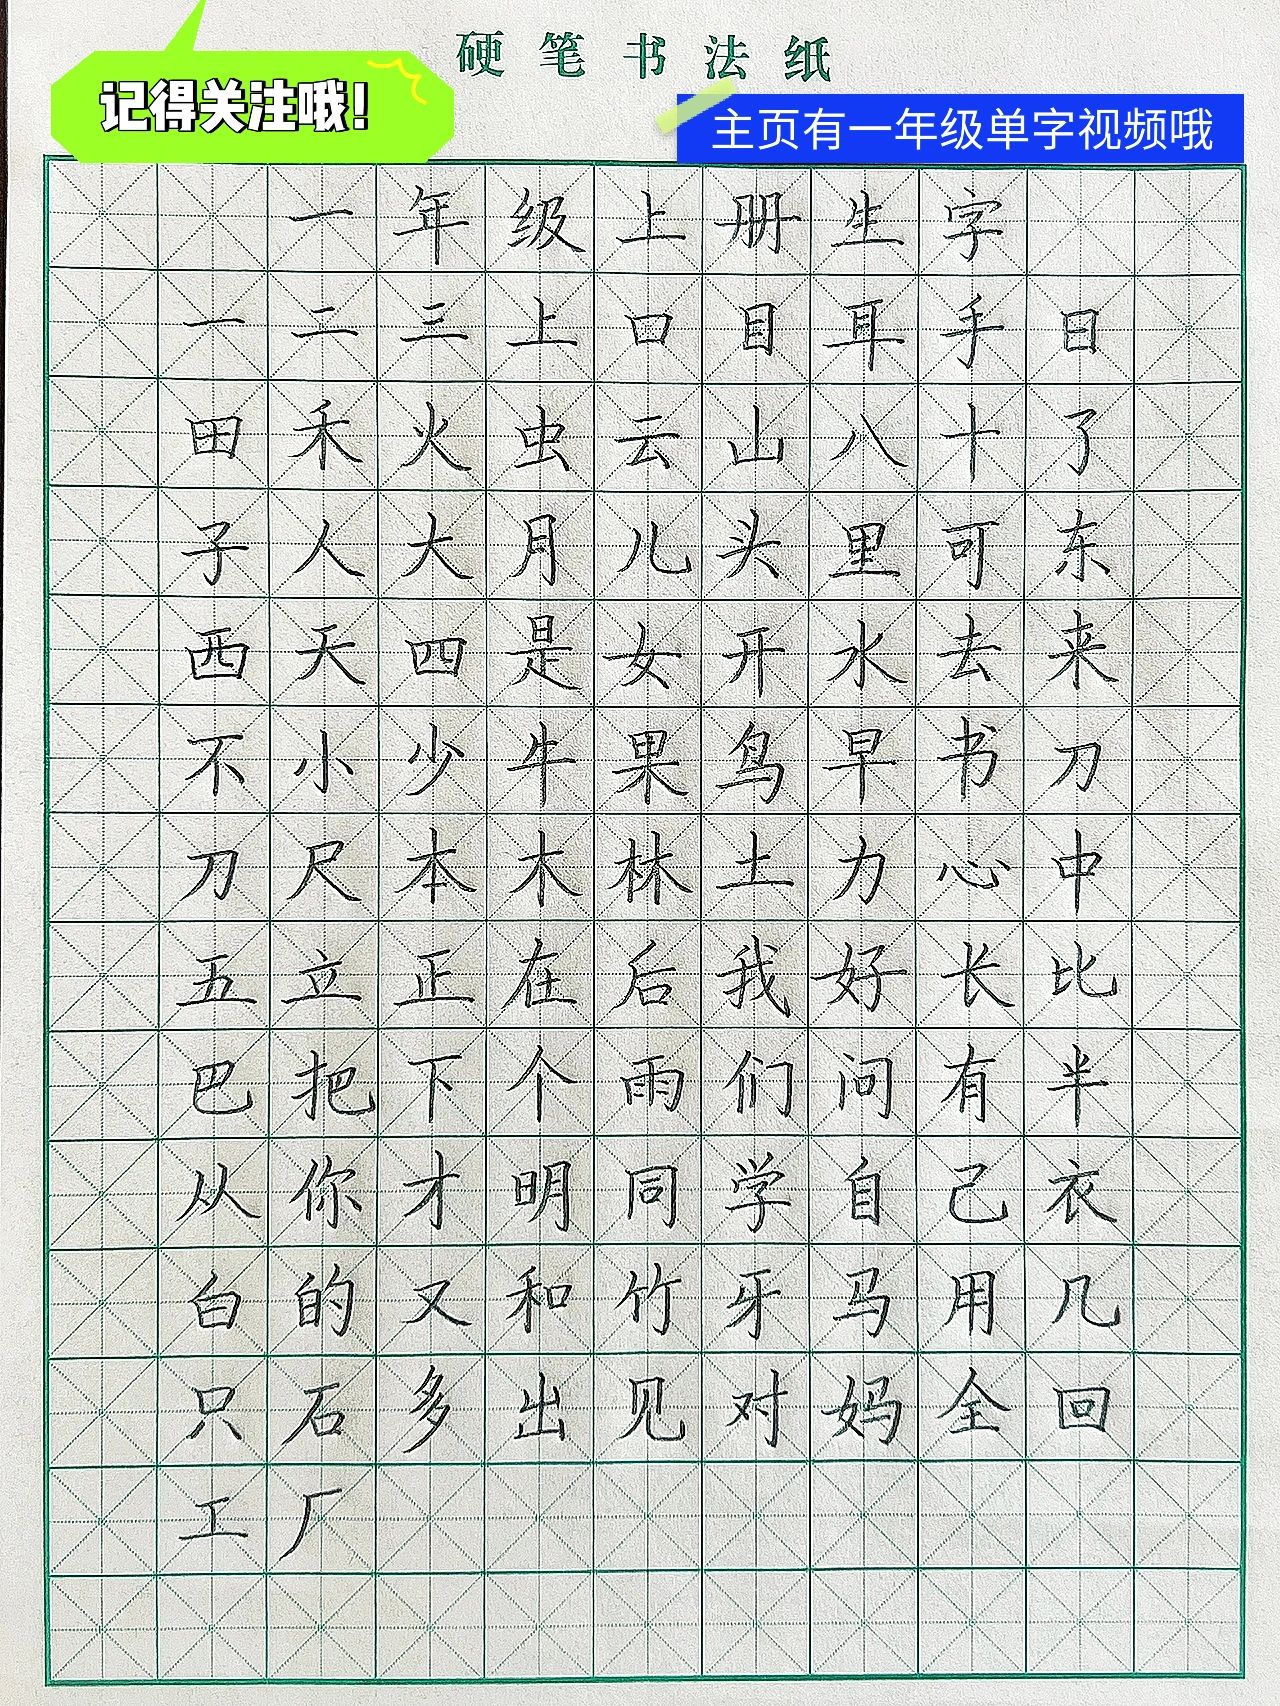 硬笔书法纸
记得关注哦!
主页有一年级单字视频哦
一年级上册生字
一二三上口目耳手日
田禾火虫云山八十了
子人大月儿头里可东
西天四是女开水去来
不小少牛果鸟早书刀
刀尺本木林土力心中
五立正在后我好长比
巴把下个雨们问有半
从你才明同学自己衣
白的又和竹牙马用几
只石多出见对妈全回
工厂